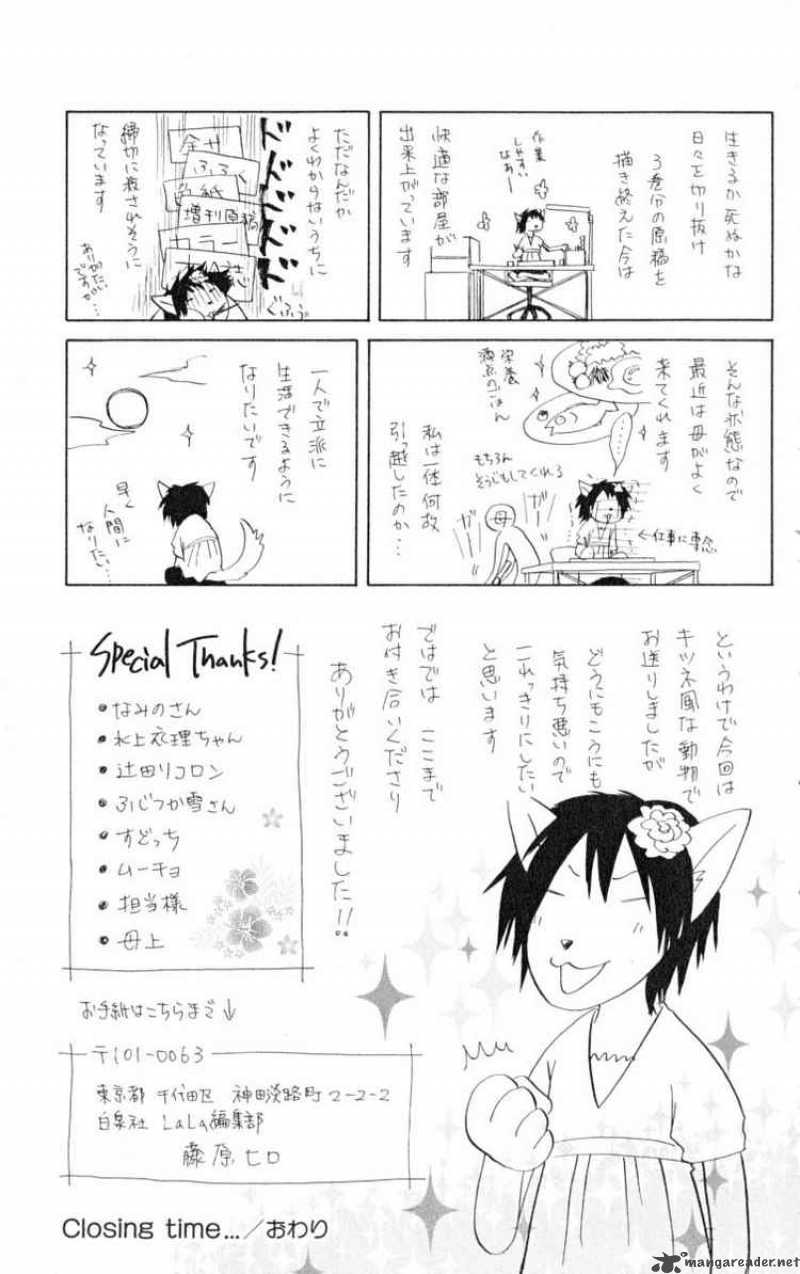 生きるか死ぬかな
日々を切り抜け
3巻分の原稿を
描き終えた今は
作業
しやすい
なぁー
快適な部屋が
出来上がっています
ただなんだか
よくわからないうちに
ドドドドド
全サ
ふろく
色紙
増刊原稿
カラー
締切に殺されそうに
なっています
ぐふぅ
ありがたい
ですが…
そんな状態なので
最近は母がよく
来てくれます
……
栄養
満点のごはん
もちろん
そうじもしてくれる
ガーガー
母
←仕事に専念
私は一体何故
引っ越したのか…
一人で立派に
生活できるように
なりたいです
早く
人間に
なりたい…
というわけで今回は
キツネ風な動物で
お送りしましたが
どうにもこうにも
気持ち悪いので
これっきりにしたい
と思います
ではでは ここまで
お付き合いくださり
ありがとうございました!!
Special Thanks!
・なみのさん
・氷上衣理ちゃん
・辻田リコロン
・ふじつか雪さん
・すどっち
・ムーチョ
・担当様
・母上
お手紙はこちらまで↓
〒101-0063
東京都 千代田区 神田淡路町2-2-2
白泉社 LaLa編集部
藤原ヒロ
Closing time…/おわり
mangareader.net